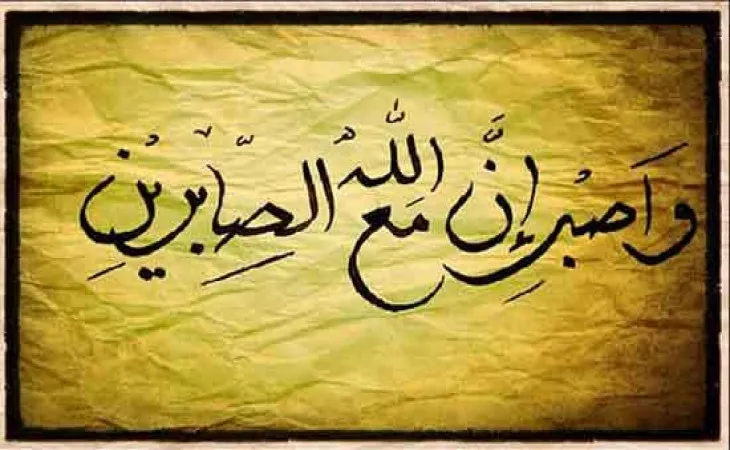 وَاصْبِر إِنَّ اللّٰهَ مَعَ الصَّابِرِينَ